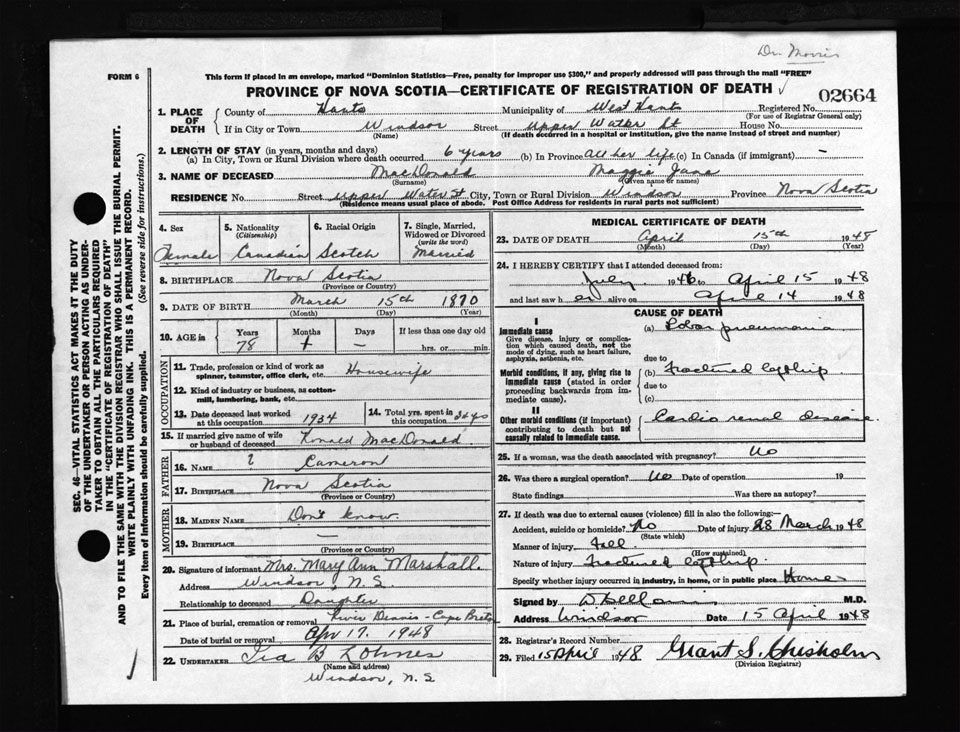 Dr. Morris
FORM 6
This form if placed in an envelope, marked "Dominion Statistics—Free, penalty for improper use $300," and properly addressed will pass through the mail "FREE"
PROVINCE OF NOVA SCOTIA—CERTIFICATE OF REGISTRATION OF DEATH
02664
SEC. 46—VITAL STATISTICS ACT MAKES IT THE DUTY
OF THE UNDERTAKER OR PERSON ACTING AS UNDER-
TAKER TO OBTAIN ALL THE PARTICULARS REQUIRED
IN THE "CERTIFICATE OF REGISTRATION OF DEATH"
AND TO FILE THE SAME WITH THE DIVISION REGISTRAR WHO SHALL ISSUE THE BURIAL PERMIT.
WRITE PLAINLY WITH UNFADING INK. THIS IS A PERMANENT RECORD.
Every item of Information should be carefully supplied. (See reverse side for instructions.)
1. PLACE OF DEATH
County of Hants Municipality of West Hants Registered No.
(For use of Registrar General only)
If in City or Town Windsor Street Upper Water St House No.
(Name) (If death occurred in a hospital or institution, give the name instead of street and number)
2. LENGTH OF STAY (in years, months and days)
(a) In City, Town or Rural Division where death occurred 6 years (b) In Province All her life (c) In Canada (if immigrant) —
3. NAME OF DECEASED MacDonald Maggie Jane
(Surname) (Given name or names)
RESIDENCE No. Street Upper Water St City, Town or Rural Division Windsor Province Nova Scotia
(Residence means usual place of abode. Post Office Address for residents in rural parts not sufficient)
4. Sex Female
5. Nationality (Citizenship) Canadian
6. Racial Origin Scotch
7. Single, Married, Widowed or Divorced (write the word) Married
8. BIRTHPLACE Nova Scotia
(Province or Country)
9. DATE OF BIRTH March 15th 1870
(Month) (Day) (Year)
10. AGE in Years Months Days If less than one day old
78 + — hrs. or min.
OCCUPATION
11. Trade, profession or kind of work as spinner, teamster, office clerk, etc. Housewife
12. Kind of industry or business, as cotton-mill, lumbering, bank, etc.
13. Date deceased last worked at this occupation 1934
14. Total yrs. spent in this occupation
15. If married give name of wife or husband of deceased Ronald MacDonald
FATHER
16. NAME ? Cameron
17. BIRTHPLACE Nova Scotia
(Province or Country)
MOTHER
18. MAIDEN NAME Don't know.
19. BIRTHPLACE —
(Province or Country)
20. Signature of informant Mrs. Mary Ann Marshall.
Address Windsor N.S.
Relationship to deceased Daughter
21. Place of burial, cremation or removal River Dennis - Cape Breton
Date of burial or removal Apr 17. 1948
22. UNDERTAKER Ira B Lohnes
(Name and address)
Windsor, N.S
MEDICAL CERTIFICATE OF DEATH
23. DATE OF DEATH April 15th 1948
(Month) (Day) (Year)
24. I HEREBY CERTIFY that I attended deceased from:
July 1946 to April 15 1948
and last saw her alive on April 14 1948
CAUSE OF DEATH
I
Immediate cause
Give disease, injury or complication which caused death, not the mode of dying, such as heart failure, asphyxia, asthenia, etc.
(a) Lobar pneumonia
due to
Morbid conditions, if any, giving rise to immediate cause (stated in order proceeding backwards from immediate cause).
(b) Fractured left hip
due to
(c)
II
Other morbid conditions (if important) contributing to death but not causally related to immediate cause.
Cardio renal disease.
25. If a woman, was the death associated with pregnancy? No
26. Was there a surgical operation? No Date of operation 19
State findings Was there an autopsy?
27. If death was due to external causes (violence) fill in also the following:
Accident, suicide or homicide? No Date of injury 28 March 1948
(State which)
Manner of injury Fall
(How sustained)
Nature of injury Fractured left hip
Specify whether injury occurred in industry, in home, or in public place Home
Signed by M.D.
Address Windsor Date 15 April 1948
28. Registrar's Record Number
29. Filed 15 April 1948 Grant S. Chisholm
(Division Registrar)